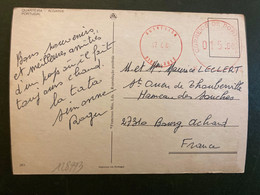 QUARTEIRA - ALGARVE
PORTUGAL
Bons souvenirs
et meilleures amitiés
d'un pays où il fait
toujours chaud.
la tata
Simonne
Roger
Mr et Mme Maurice LECLERT
St Ouen de Thouberville
Hameau des Douches
27310 Bourg Achard
France